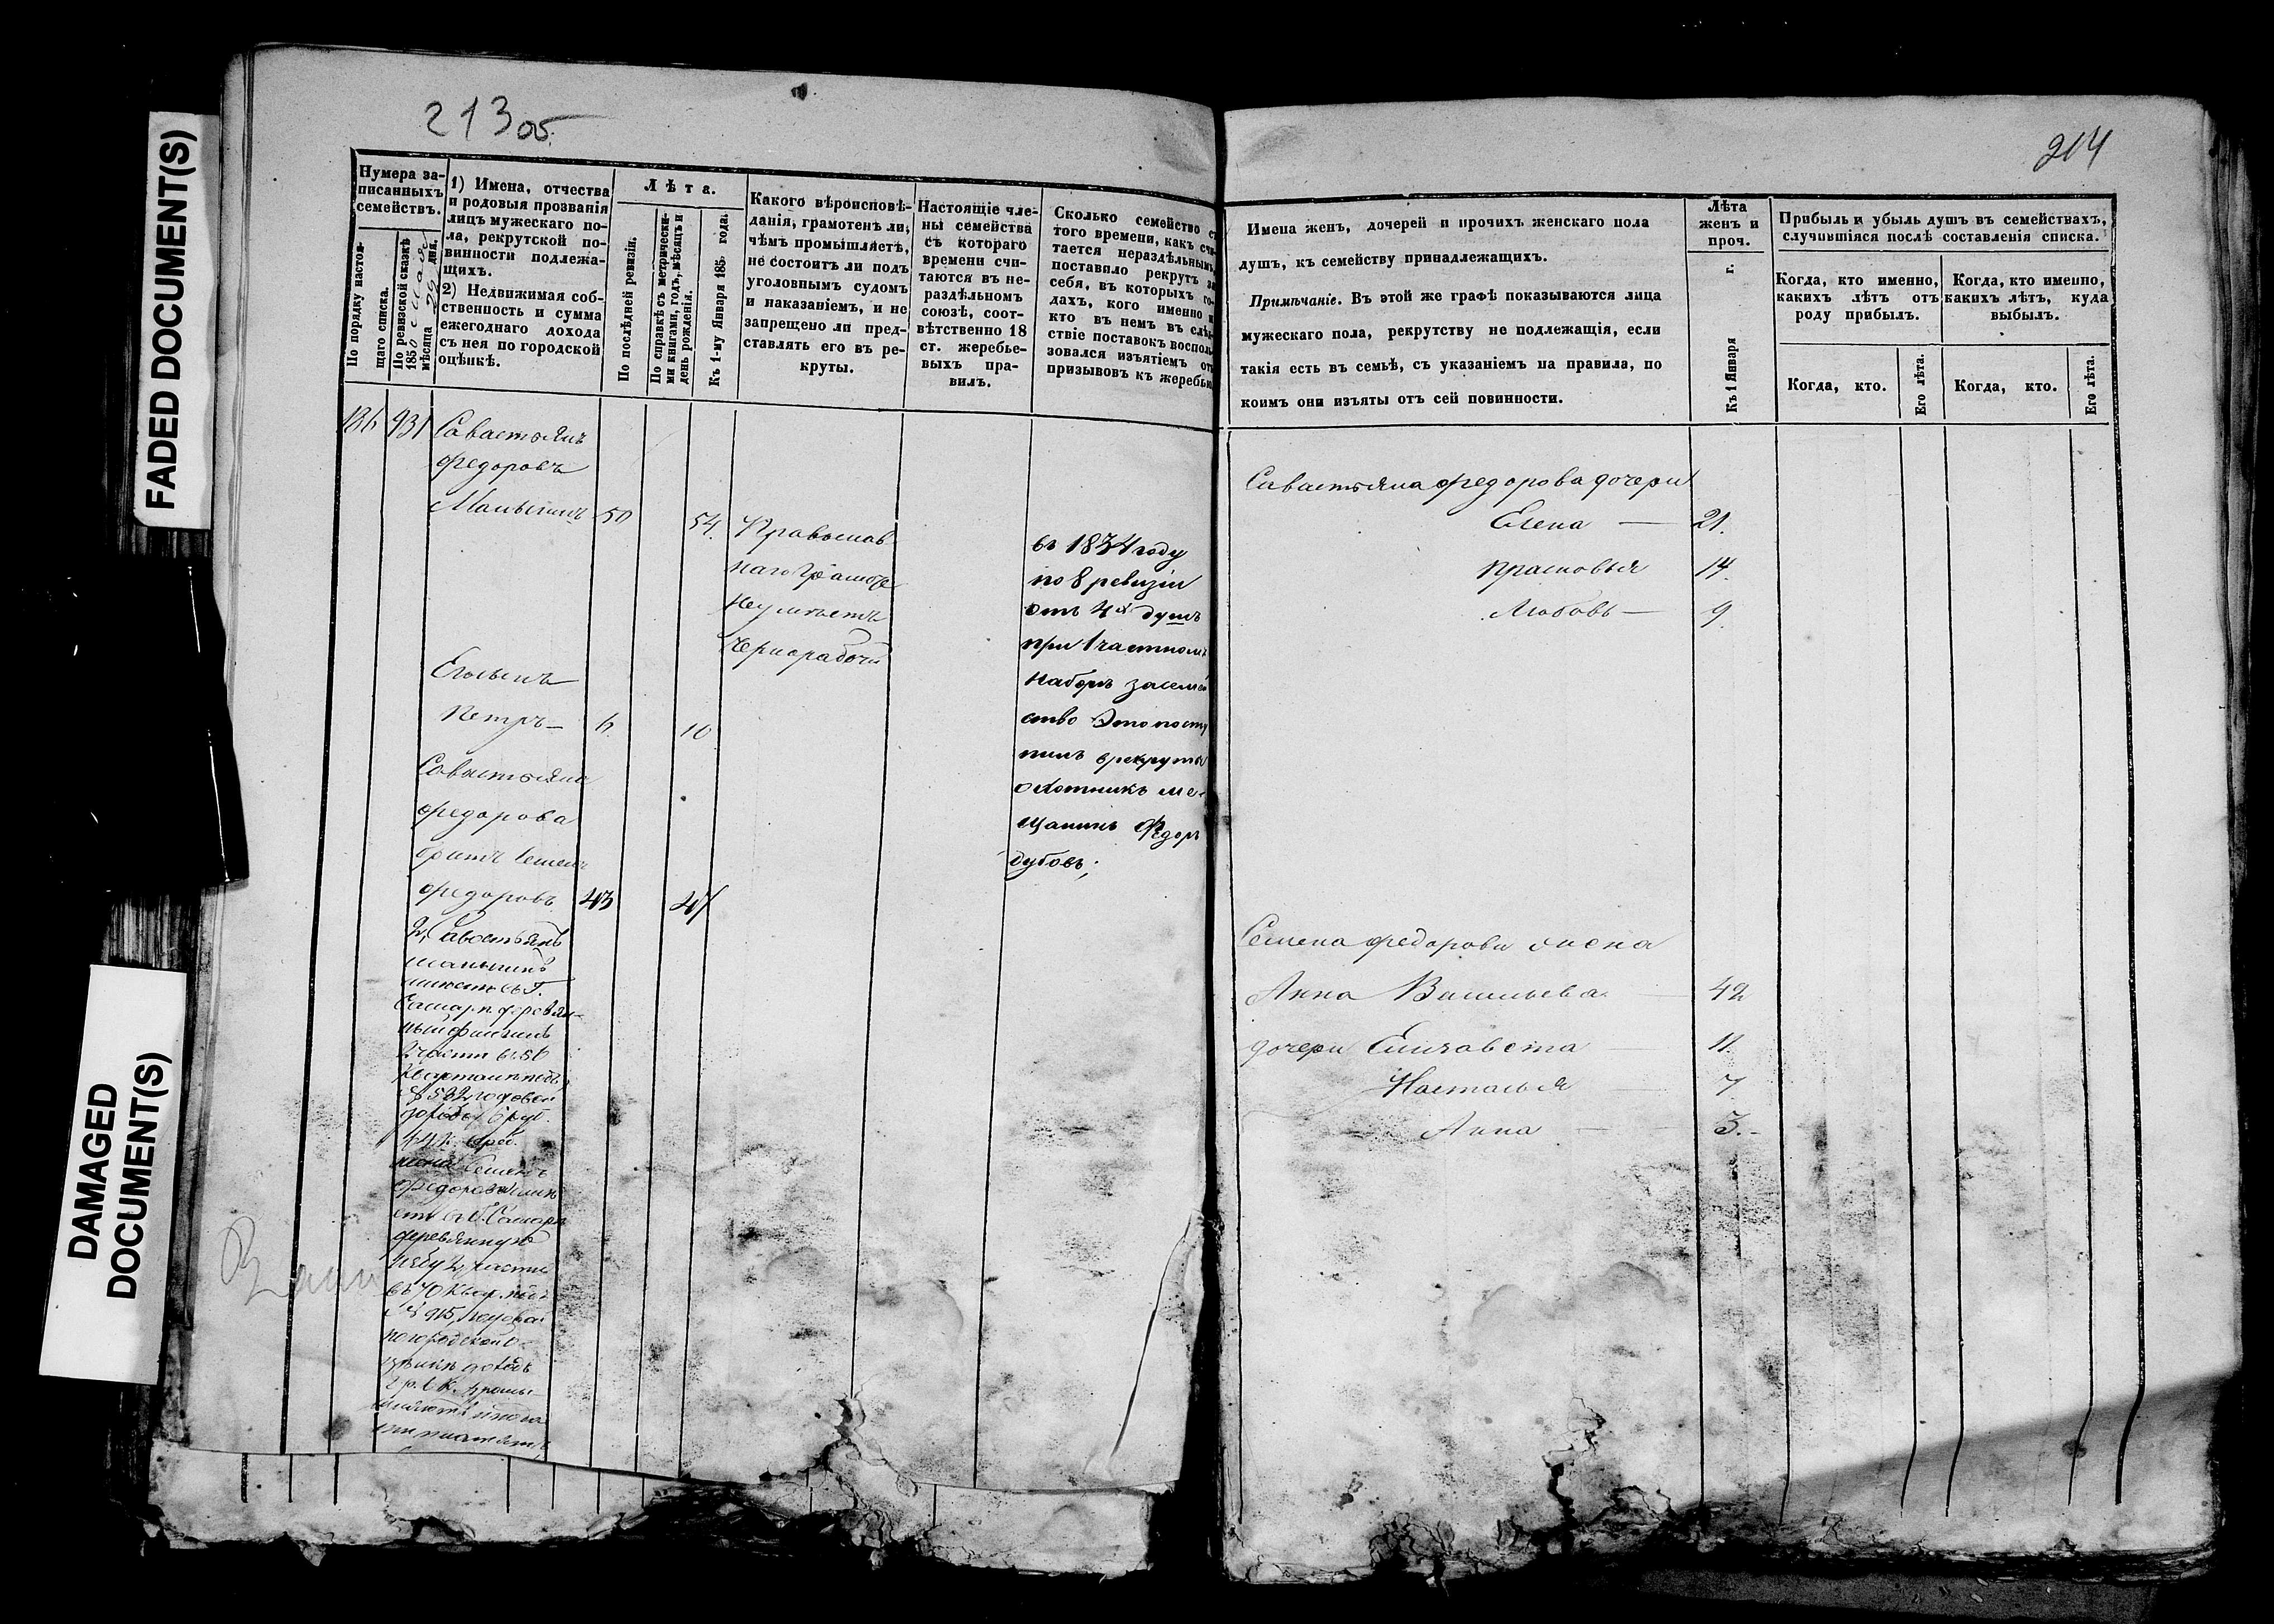 FADED DOCUMENT(S)
DAMAGED
DOCUMENT(S)
213 об.
Нумера за-
писанныхъ
семействъ.
По порядку настоя-
щаго списка.
По ревизской сказкѣ
1850
мѣсяца 29 дня.
1) Имена, отчества
и родовыя прозванія
лицъ мужескаго по-
ла, рекрутской по-
винности подлежа-
щихъ.
2) Недвижимая соб-
ственность и сумма
ежегоднаго дохода
съ нея по городской
оцѣнкѣ.
Лѣта.
По послѣдней ревизіи.
По справкѣ съ метрически-
ми книгами, годъ, мѣсяцъ и
день рожденія.
Къ 1-му Января 185 года.
Какого вѣроисповѣ-
данія, грамотенъ ли,
чѣмъ промышляетъ,
не состоитъ ли подъ
уголовнымъ судомъ
и наказаніемъ, и не
запрещено ли пред-
ставлять его въ ре-
круты.
Настоящіе чле-
ны семейства
съ котораго
времени счи-
таются въ не-
раздѣльномъ
союзѣ, соот-
вѣтственно 18
ст. жеребье-
выхъ пра-
вилъ.
Сколько семейство съ
того времени, какъ счи-
тается нераздѣльнымъ,
поставило рекрутъ за
себя, въ которыхъ го-
дахъ, кого именно и
кто въ немъ въ слѣд-
ствіе поставокъ восполь-
зовался изъятіемъ отъ
призывовъ къ жеребью
931 Савастьянъ
Федоровъ
50 54.
Православ
наго Грамоте
неумѣетъ
Чернорабочій
въ 1834 году
по 8 ревизіи
отъ 4х душъ
при 1 частномъ
наборѣ засемей
ство Это посту
пилъ врекруты
охотникъ ме-
щанинъ Федоръ
Дубовъ;
Петръ 6 10
Савастьяна
Федорова
братъ Семенъ
Федоровъ 43 47
2, Савостьянъ
имѣетъ въ Г.
Самарѣ деревян-
ный флигель
2 части въ 56
Семенъ
Федоровъ имѣ
етъ въ Г. Самарѣ
деревянную
избу 2, части
въ 70 Квар. подъ
№ 915, годовой
погородской о-
цѣнкѣ доходъ
214
Имена женъ, дочерей и прочихъ женскаго пола
душъ, къ семейству принадлежащихъ.
Примѣчаніе. Въ этой же графѣ показываются лица
мужескаго пола, рекрутству не подлежащія, если
такія есть въ семьѣ, съ указаніемъ на правила, по
коимъ они изъяты отъ сей повинности.
Лѣта
женъ и
проч.
Къ 1 Января г.
Прибыль и убыль душъ въ семействахъ,
случившіяся послѣ составленія списка.
Когда, кто именно,
какихъ лѣтъ отъ
роду прибылъ.
Когда, кто именно,
какихъ лѣтъ, куда
выбылъ.
Когда, кто.
Его лѣта.
Когда, кто.
Его лѣта.
Савастьяна Федорова дочери
Елена — 21.
Прасковья 14
Любовь — 9
Семена Федорова жена
Анна Васильева — 42
дочери Елизавета — 11.
Настасья — 7
Анна — 3.